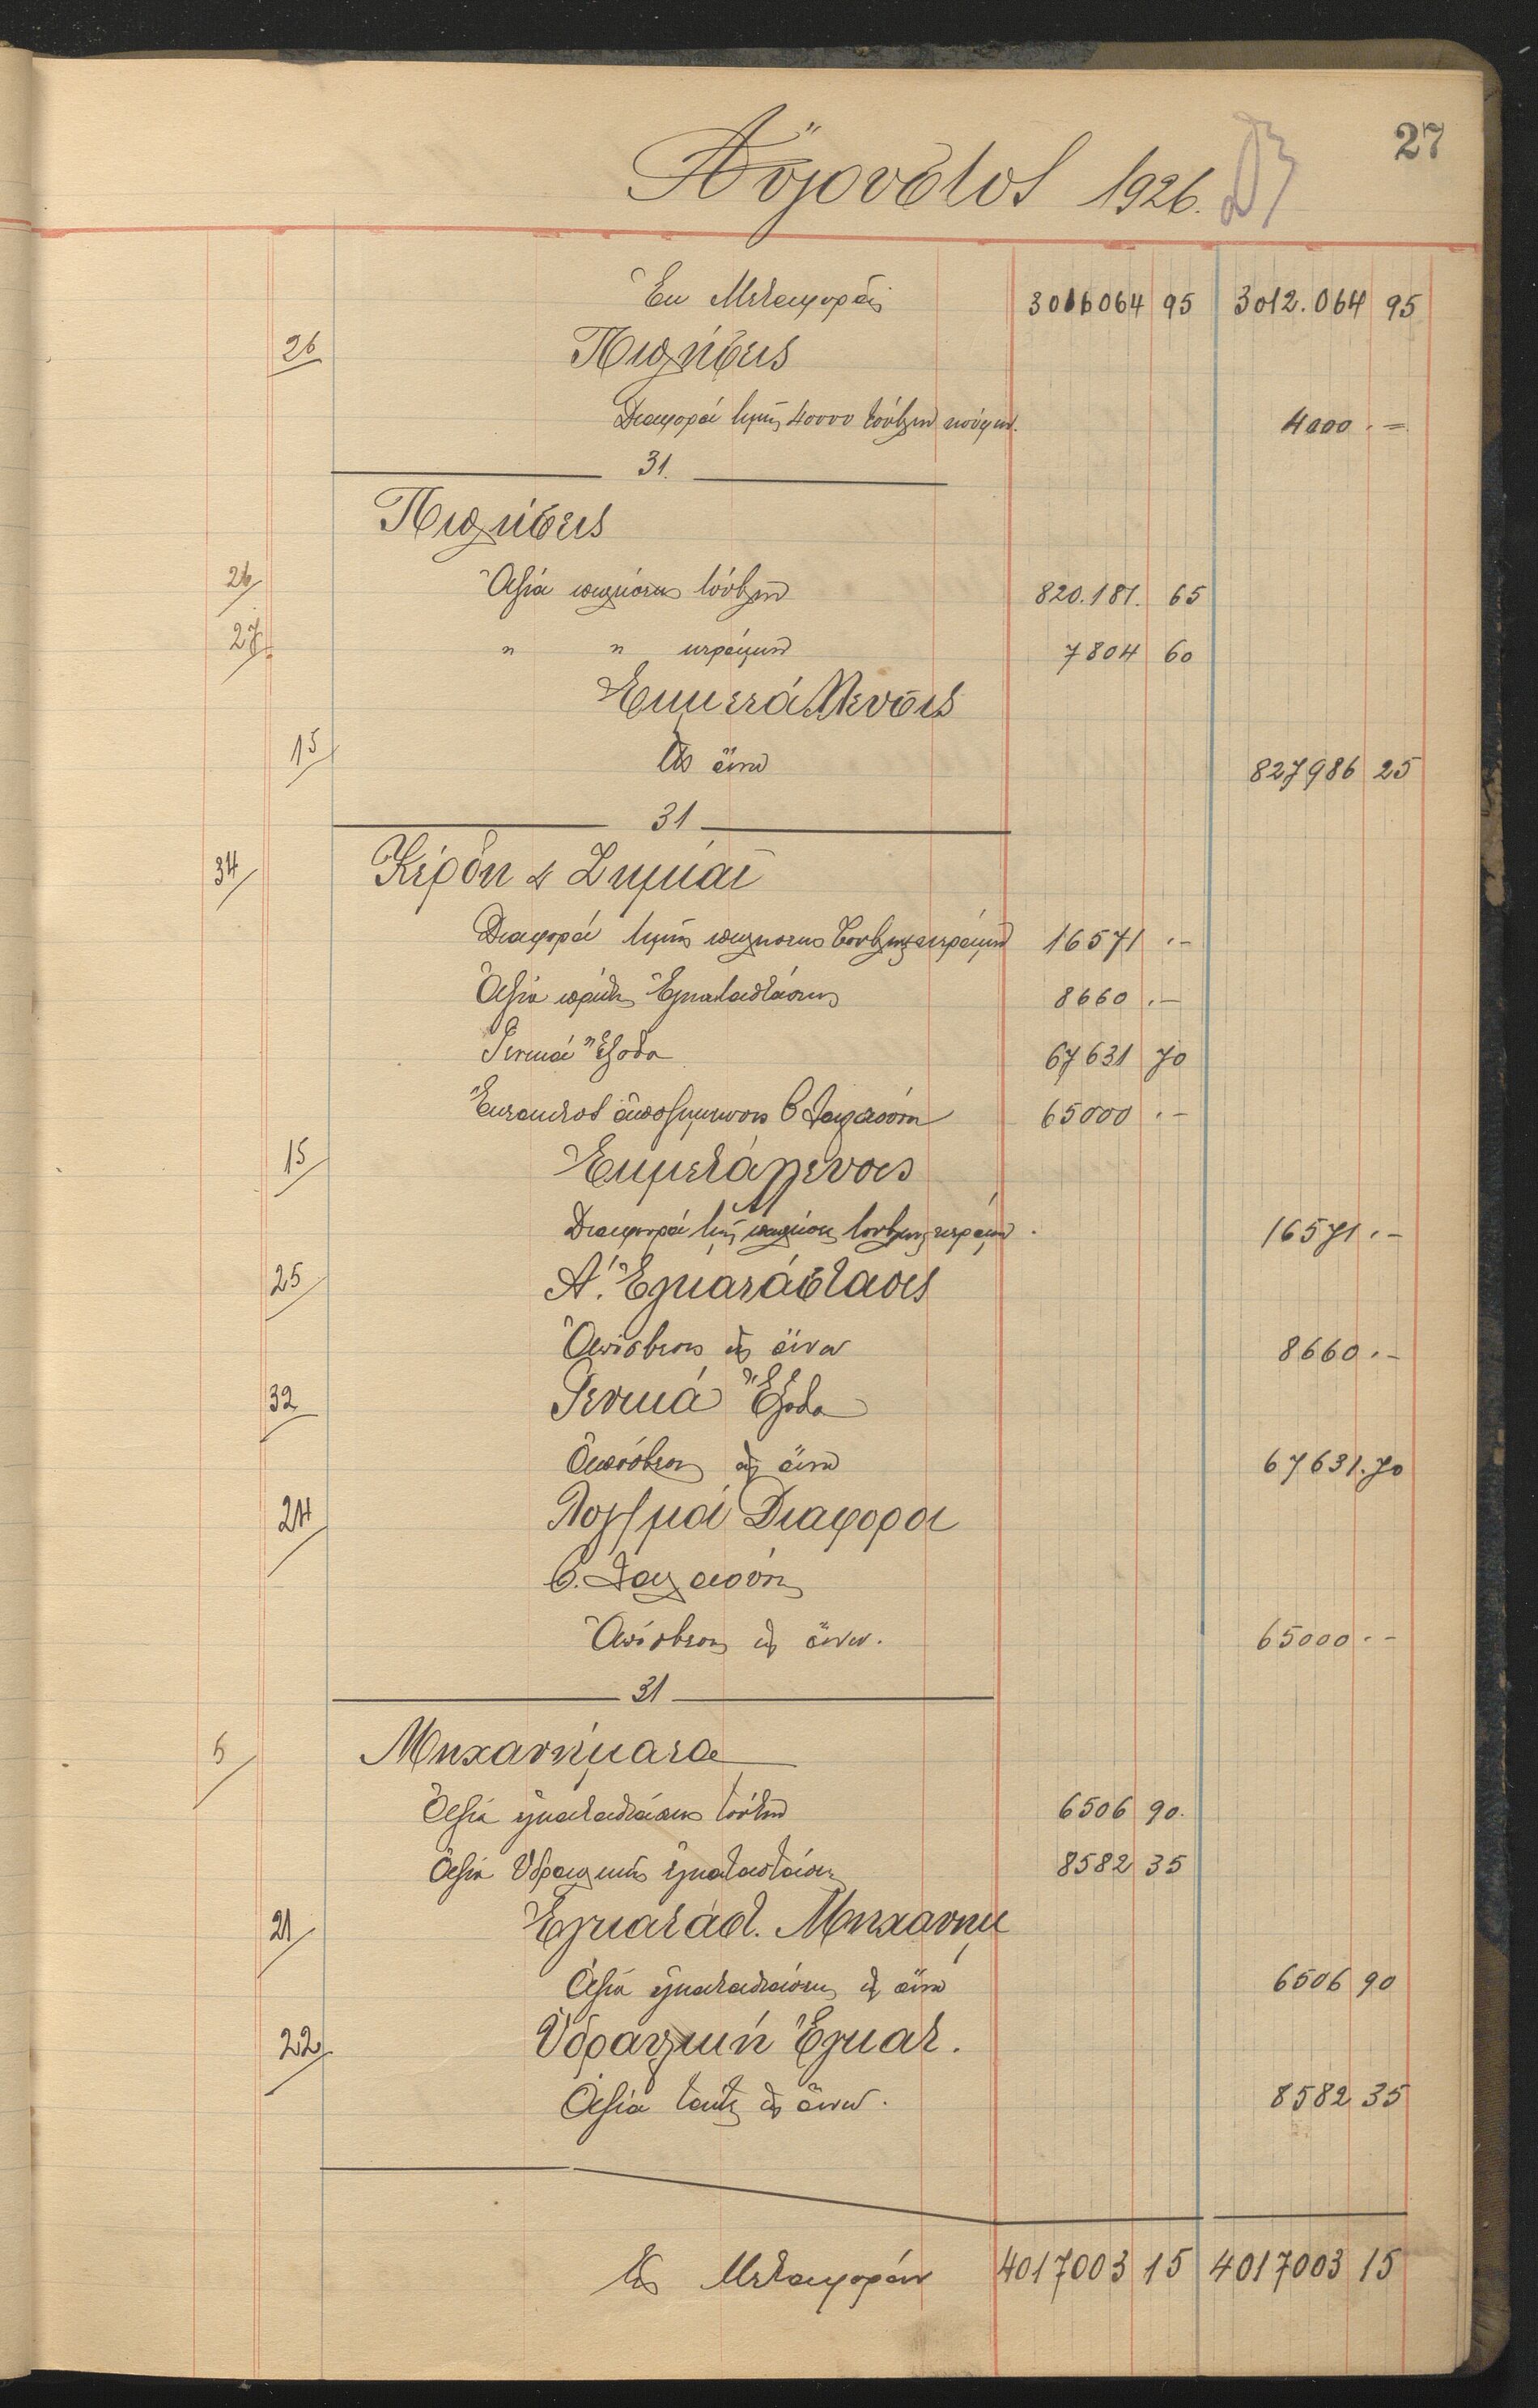 27
Αὔγουστος 1926.
Ἐκ Μεταφορᾶς 3016064 95 3012.064 95
26 Πωλήσεις
Διαφορά τιμῆς 40000 τούβλων κούφων. 4000.=
31.
Πωλήσεις
26 Ἀξία πωλήσεως τούβλων 820.181. 65
27 " " κεράμων 7804 60
Ἐκμετάλλευσις
15 ὡς ἄνω 827986 25
31
34 Κέρδη & Ζημίαι
Διαφορά τιμῆς πωλήσεως τούβλων κεράμων 16571 .-
Ἀξία Ἐγκαταστάσεως 8660 .-
Γενικά Ἔξοδα 67631 70
ἀποζημίωσις 65000 .-
15 Ἐκμετάλλευσις
Διαφορά τιμῆς πωλήσεως τούβλων κεράμων. 16571.-
25 Α΄. Ἐγκατάστασις
Ἀπόσβεσις ὡς ἄνω 8660.-
32 Γενικά Ἔξοδα
Ἀπόσβεσις ὡς ἄνω 67631.70
24 Λογ/σμοί Διάφοροι
Ἀπόσβεσις ὡς ἄνω. 65000.-
31
5 Μηχανήματα
Ἀξία ἐγκαταστάσεως τούτων 6506 90.
Ἀξία Ὑδραυλικῆς ἐγκαταστάσεως 8582 35
21 Ἐγκατάστ. Μηχανημ
Ἀξία ἐγκαταστάσεως ὡς ἄνω 6506 90
22 Ὑδραυλική Ἐγκατ.
Ἀξία ταύτης ὡς ἄνω. 8582 35
Εἰς Μεταφοράν 4017003 15 4017003 15